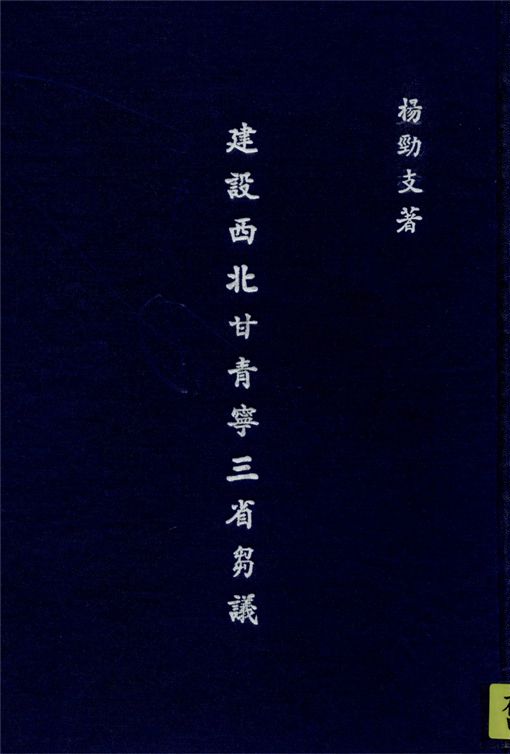 楊勁支著
建設西北甘青寧三省芻議